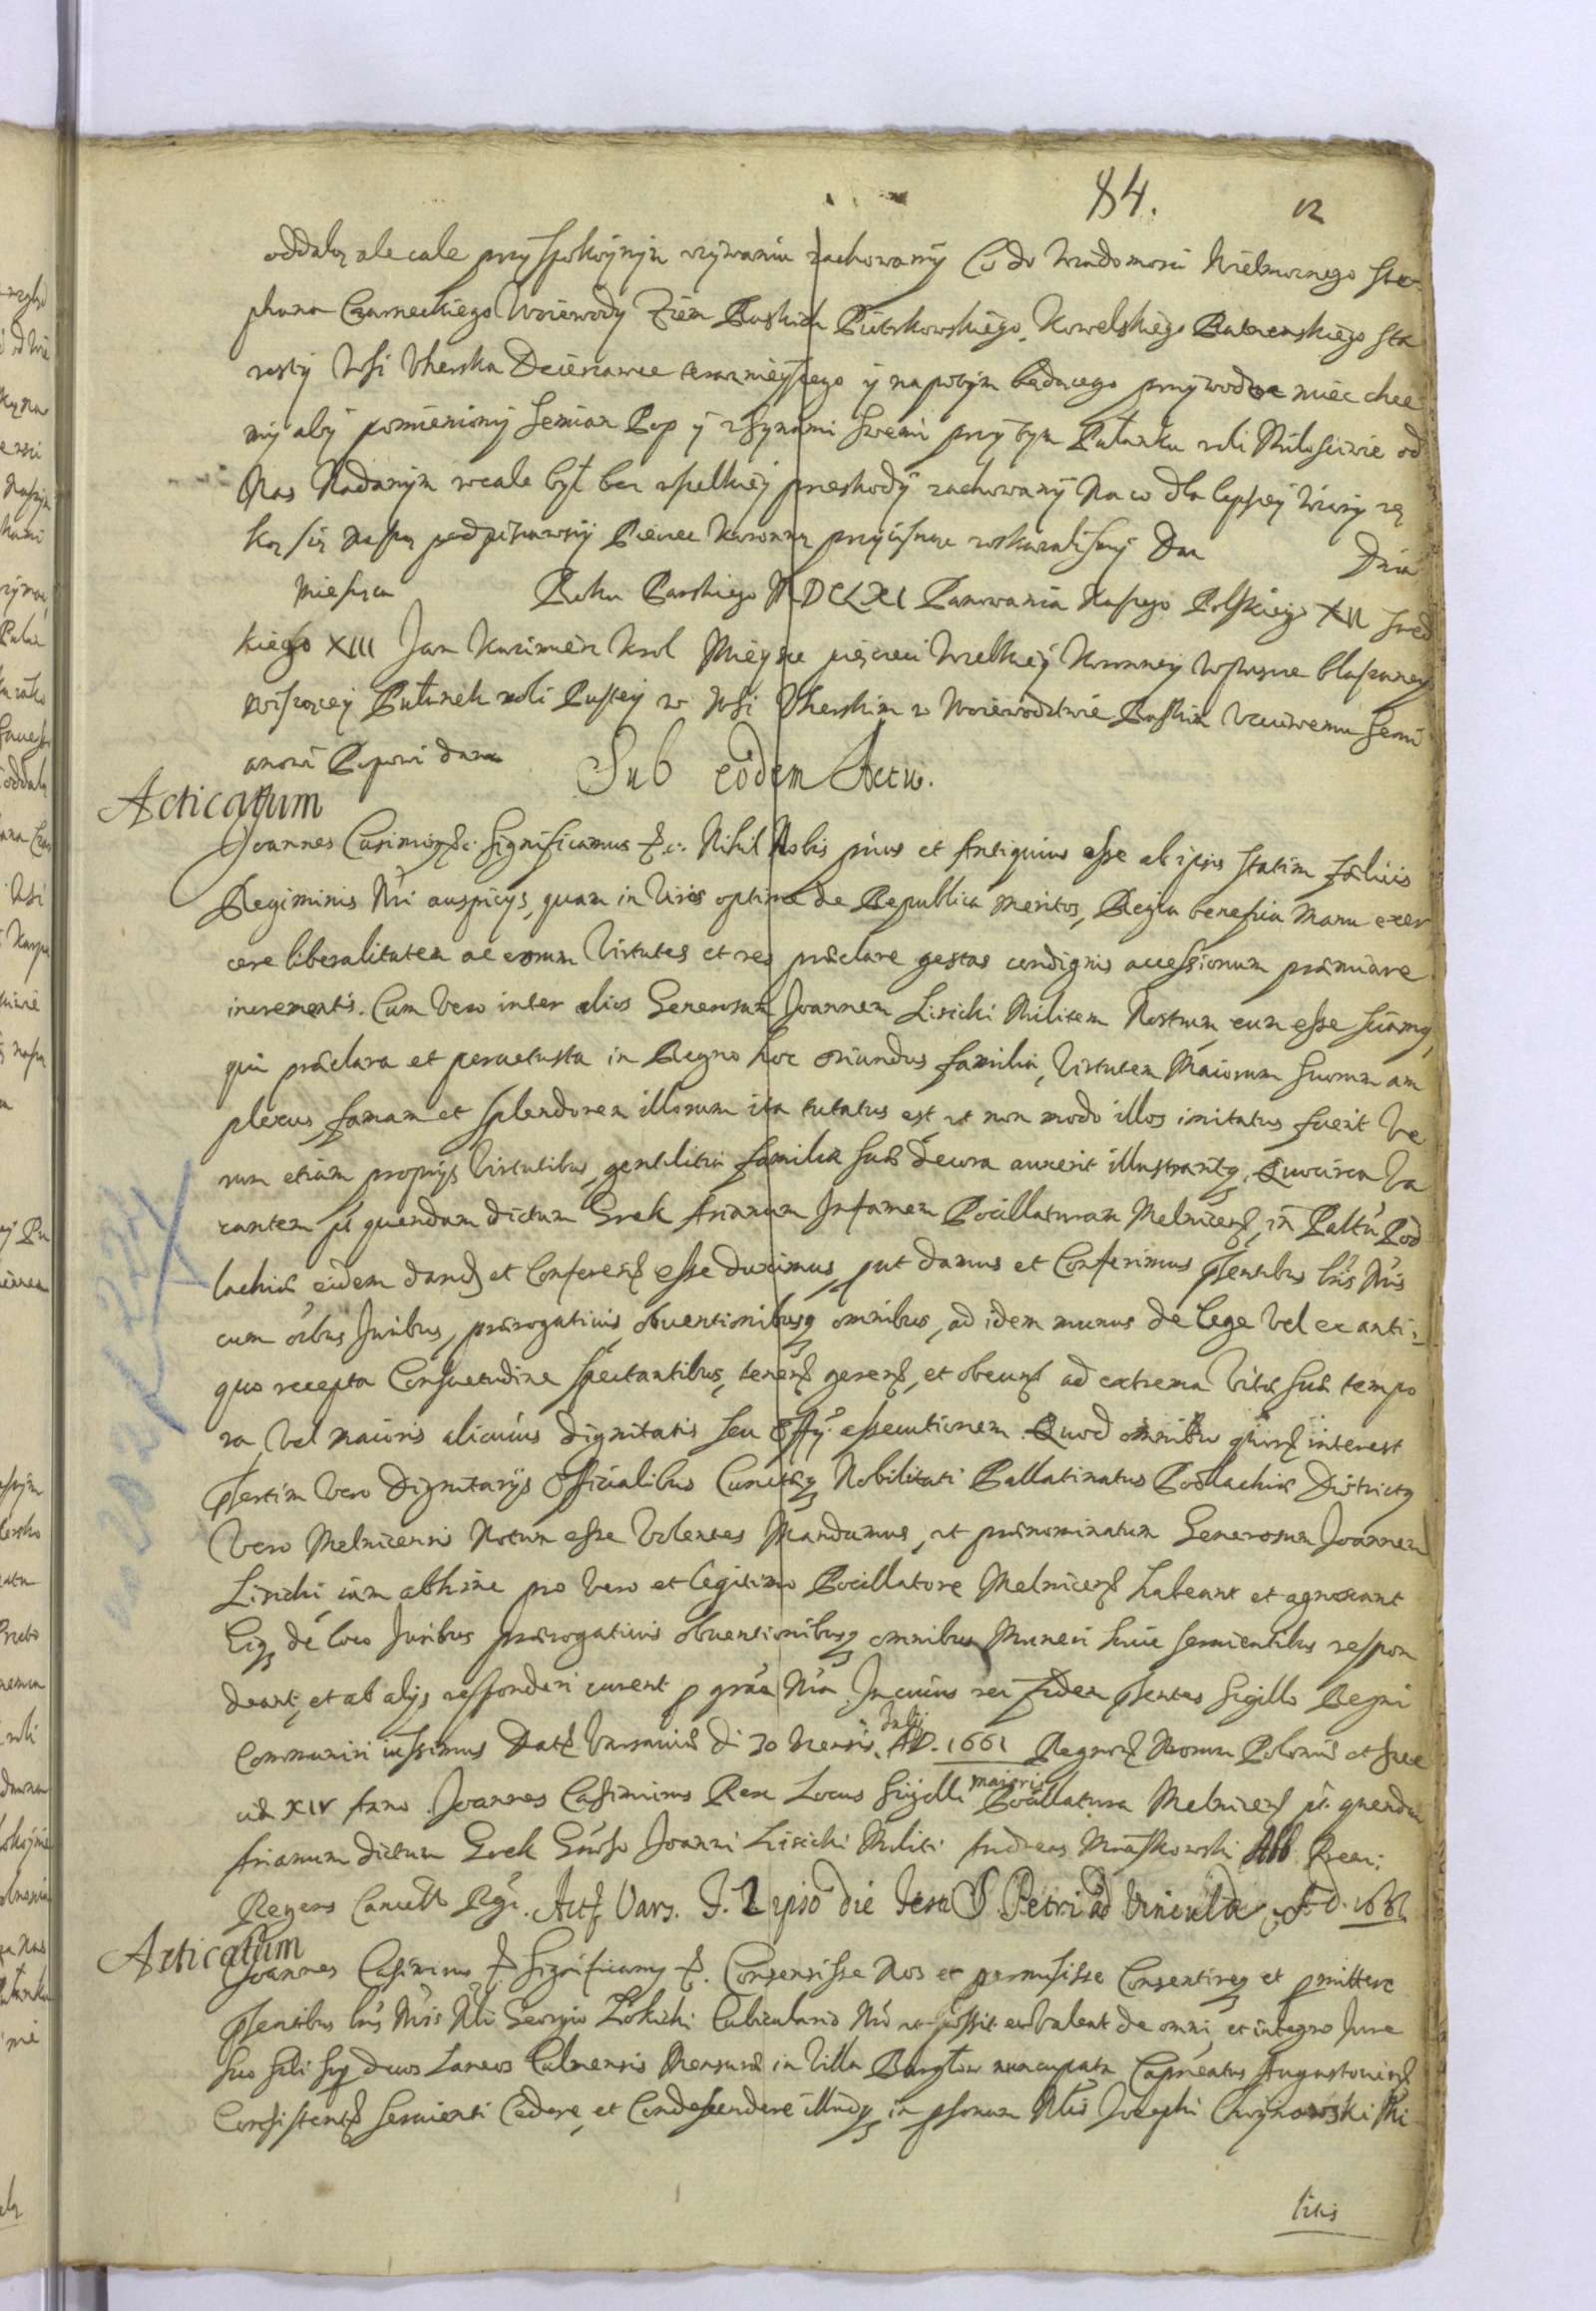 84. 12
oddalą ale cale przy spokoynym używaniu zachowamy Co do wiadomosci Wielmoznego Ste
phana Czarneckiego Woiewody Ziem Ruskich Piotrkowskiego, Kowelskiego Ratnenskiego Sta
rosty Wsi Uherska Dzierzawce teraznieyszego y napotym będącego przywodząc miec chce
my aby pomieniony Semian Pop y z synami swemi przy tym Pułanku roli Miłosciwie od
Nas Nadanym wcale był bez wszelkiey przeskody zachowany Na co dla lepszey wiary rę
ką się naszą podpisawszy Pieczec Koronną przycisnąc roskazalismy Dan Dnia
Miesiąca Roku Panskiego MDCLXI Panowania Naszego Polskiego XII Swed
kiego XIII Jan Kazimierz Krol Mieysce pieczęci Wielkiey Koronney
Pułanek roli Pustey w Wsi Uherskim w Woiewodztwie Ruskim Uczciwemu Semi
anowi Popowi dana Sub eodem Actu.
Acticatum
Joannes Casimirus &c. Significamus &c. Nihil Nobis prius et Antiquius esse ab ipsis statim fælicis
Regiminis Nri auspicys, quam in Viros optime de Republica meritos, Regia benefica Manu exer
cere liberalitatem ac eorum Virtutes et res præclare gestas condignis accessionum præmiare
incrementis. Cum vero inter alios Generosum Joannem Lisicki Militem Nostrum eum esse sciamq,
qui præclara et peruetusta in Regno hoc oriundus familia, Virtutem Maiorum suorum am
plexus, famam et splendorem illorum ita tutatus est, ut non modo illos imitatus fuerit Ve
rum etiam proprys Virtutibus, gentilitiæ familiæ suæ decora auxerit illustraritq. Quocirca Va
cantem p quendam dictum Grek Arianum Infamem Pocillaturam Melnicens, in Palltu Pod
lachiæ eidem dand et Conferend esse duximus, put damus et Conferimus psentibus Lris Nris
cum oibus Juribus, prærogatiuis obuentionibusq omnibus, ad idem munus de lege Vel ex anti=
quo recepta Consuetudine spectantibus, tenend gerend, et obeund ad extrema Vitæ suæ tempo
ra, Vel maioris alicuius dignitatis seu Offy assecutionem. Quod omnibus quor interest
psertim Vero Dignitarys Officialibus Cunctæq Nobilitati Pallatinatus Podlachiæ Districtq
Vero Melnicensis Notum esse Volentes Mandamus, ut prænominatum Generosum Joannem
Lisicki iam abhinc pro Vero et legitimo Pocillatore Melnicens habeant et agnoscant
Eiq de loco Juribus prærogatiuis obuentionibusq omnibus Muneri huic seruientibus respon
deant, et ab alys responderi curent p gratia Nra. In cuius rei fidem psentes Sigillo Regni
Communiri iussimus Dat Varsauiæ di 30 Mensis July AD. 1661 Regnor Nrorum Poloniæ et Suec
iæ XIV Anno. Joannes Casimirus Rex Locus Sigilli maioris Pocillatura Melnicens p. quendam
Arianum dictum Grek Gnoso Joanni Lisicki Militi Andreas Miaskowski Abb Præm:
Regens Cancell Rgni. Act Vars. F. 2 ipso die festi S. Petri ad Vincula A. D. 1661
Acticatum
Joannes Casimirus &. Significamq &. Consensisse Nos et permisisse Consentireq et pmittere
psentibus Lris Nris Nli Georgio Cubiculario Nro ut possit et Valeat de omni, et integro Jure
suo sibi sup duos Laneos Culmensis Mensuræ in Villa Bargłow nuncupata Capneatus Augustouiens
Consistent seruienti Cedere, et Condescendere illudq in psonam Nlis Josephi Choynowski Mi
litis